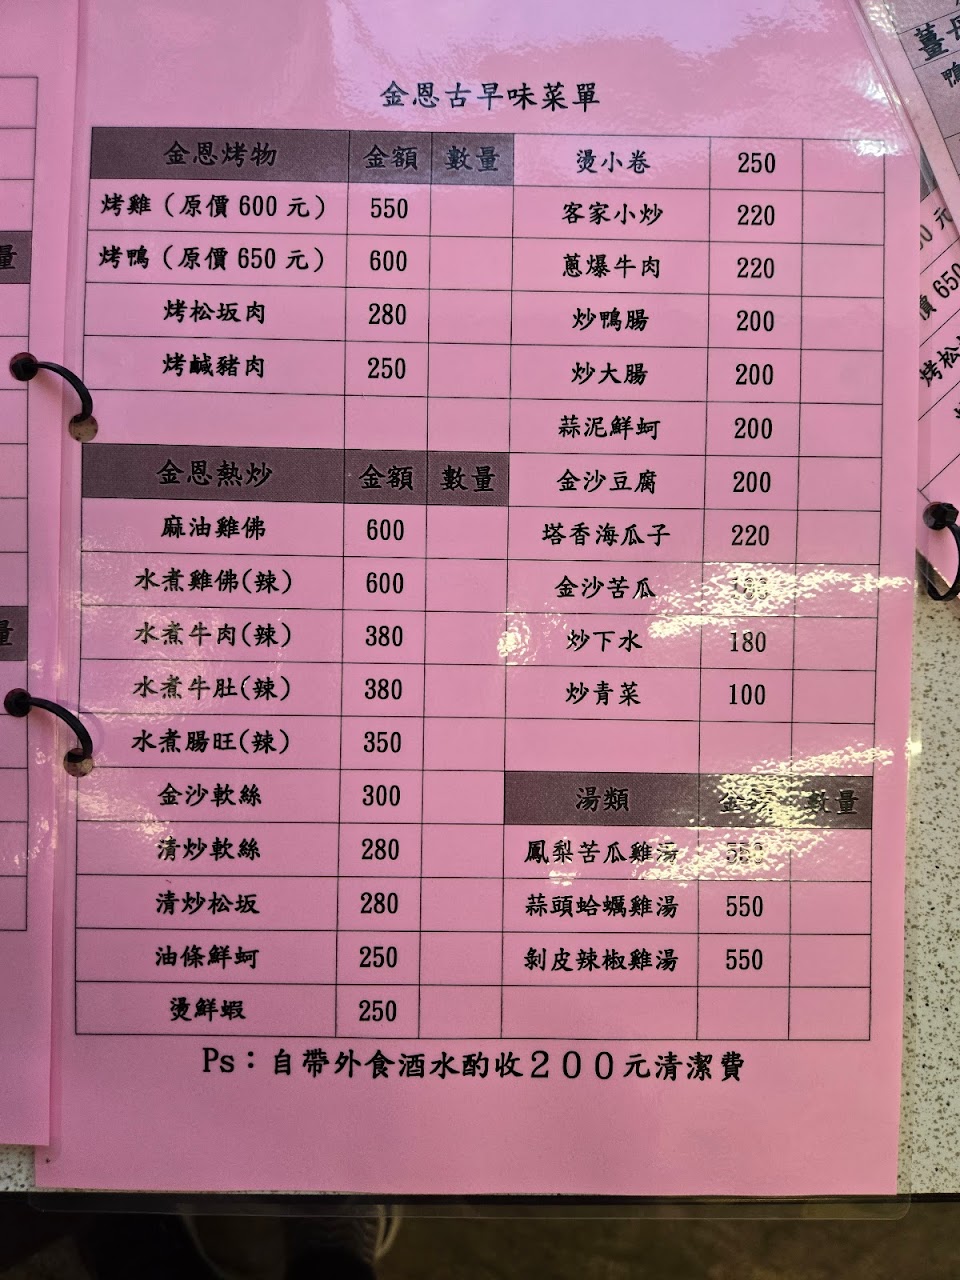 金恩古早味菜單
金恩烤物 金額 數量
烤雞（原價600元） 550
烤鴨（原價650元） 600
烤松坂肉 280
烤鹹豬肉 250
金恩熱炒 金額 數量
麻油雞佛 600
水煮雞佛(辣) 600
水煮牛肉(辣) 380
水煮牛肚(辣) 380
水煮腸旺(辣) 350
金沙軟絲 300
清炒軟絲 280
清炒松坂 280
油條鮮蚵 250
燙鮮蝦 250
燙小卷 250
客家小炒 220
蔥爆牛肉 220
炒鴨腸 200
炒大腸 200
蒜泥鮮蚵 200
金沙豆腐 200
塔香海瓜子 220
金沙苦瓜 180
炒下水 180
炒青菜 100
湯類 金額 數量
鳳梨苦瓜雞湯 550
蒜頭蛤蠣雞湯 550
剝皮辣椒雞湯 550
Ps：自帶外食酒水酌收２００元清潔費
量
量
薑母
鴨
元
價650
烤松